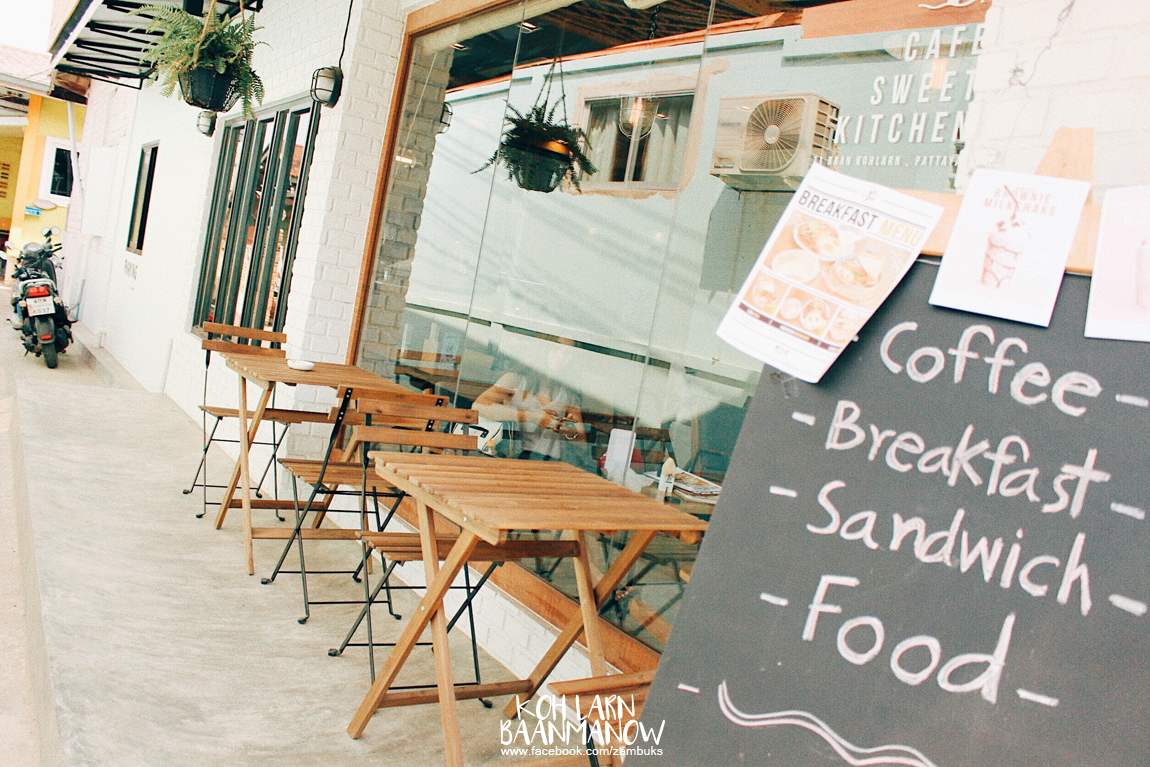 CAFE
SWEET
KITCHEN
BAAN KOHLARN , PATTAYA
BREAKFAST MENU
BROWNIE
MILKSHAKE
Coffee -
- Breakfast -
- Sandwich -
- Food -
KOH LARN
BAANMANOW
www.facebook.com/zambuks